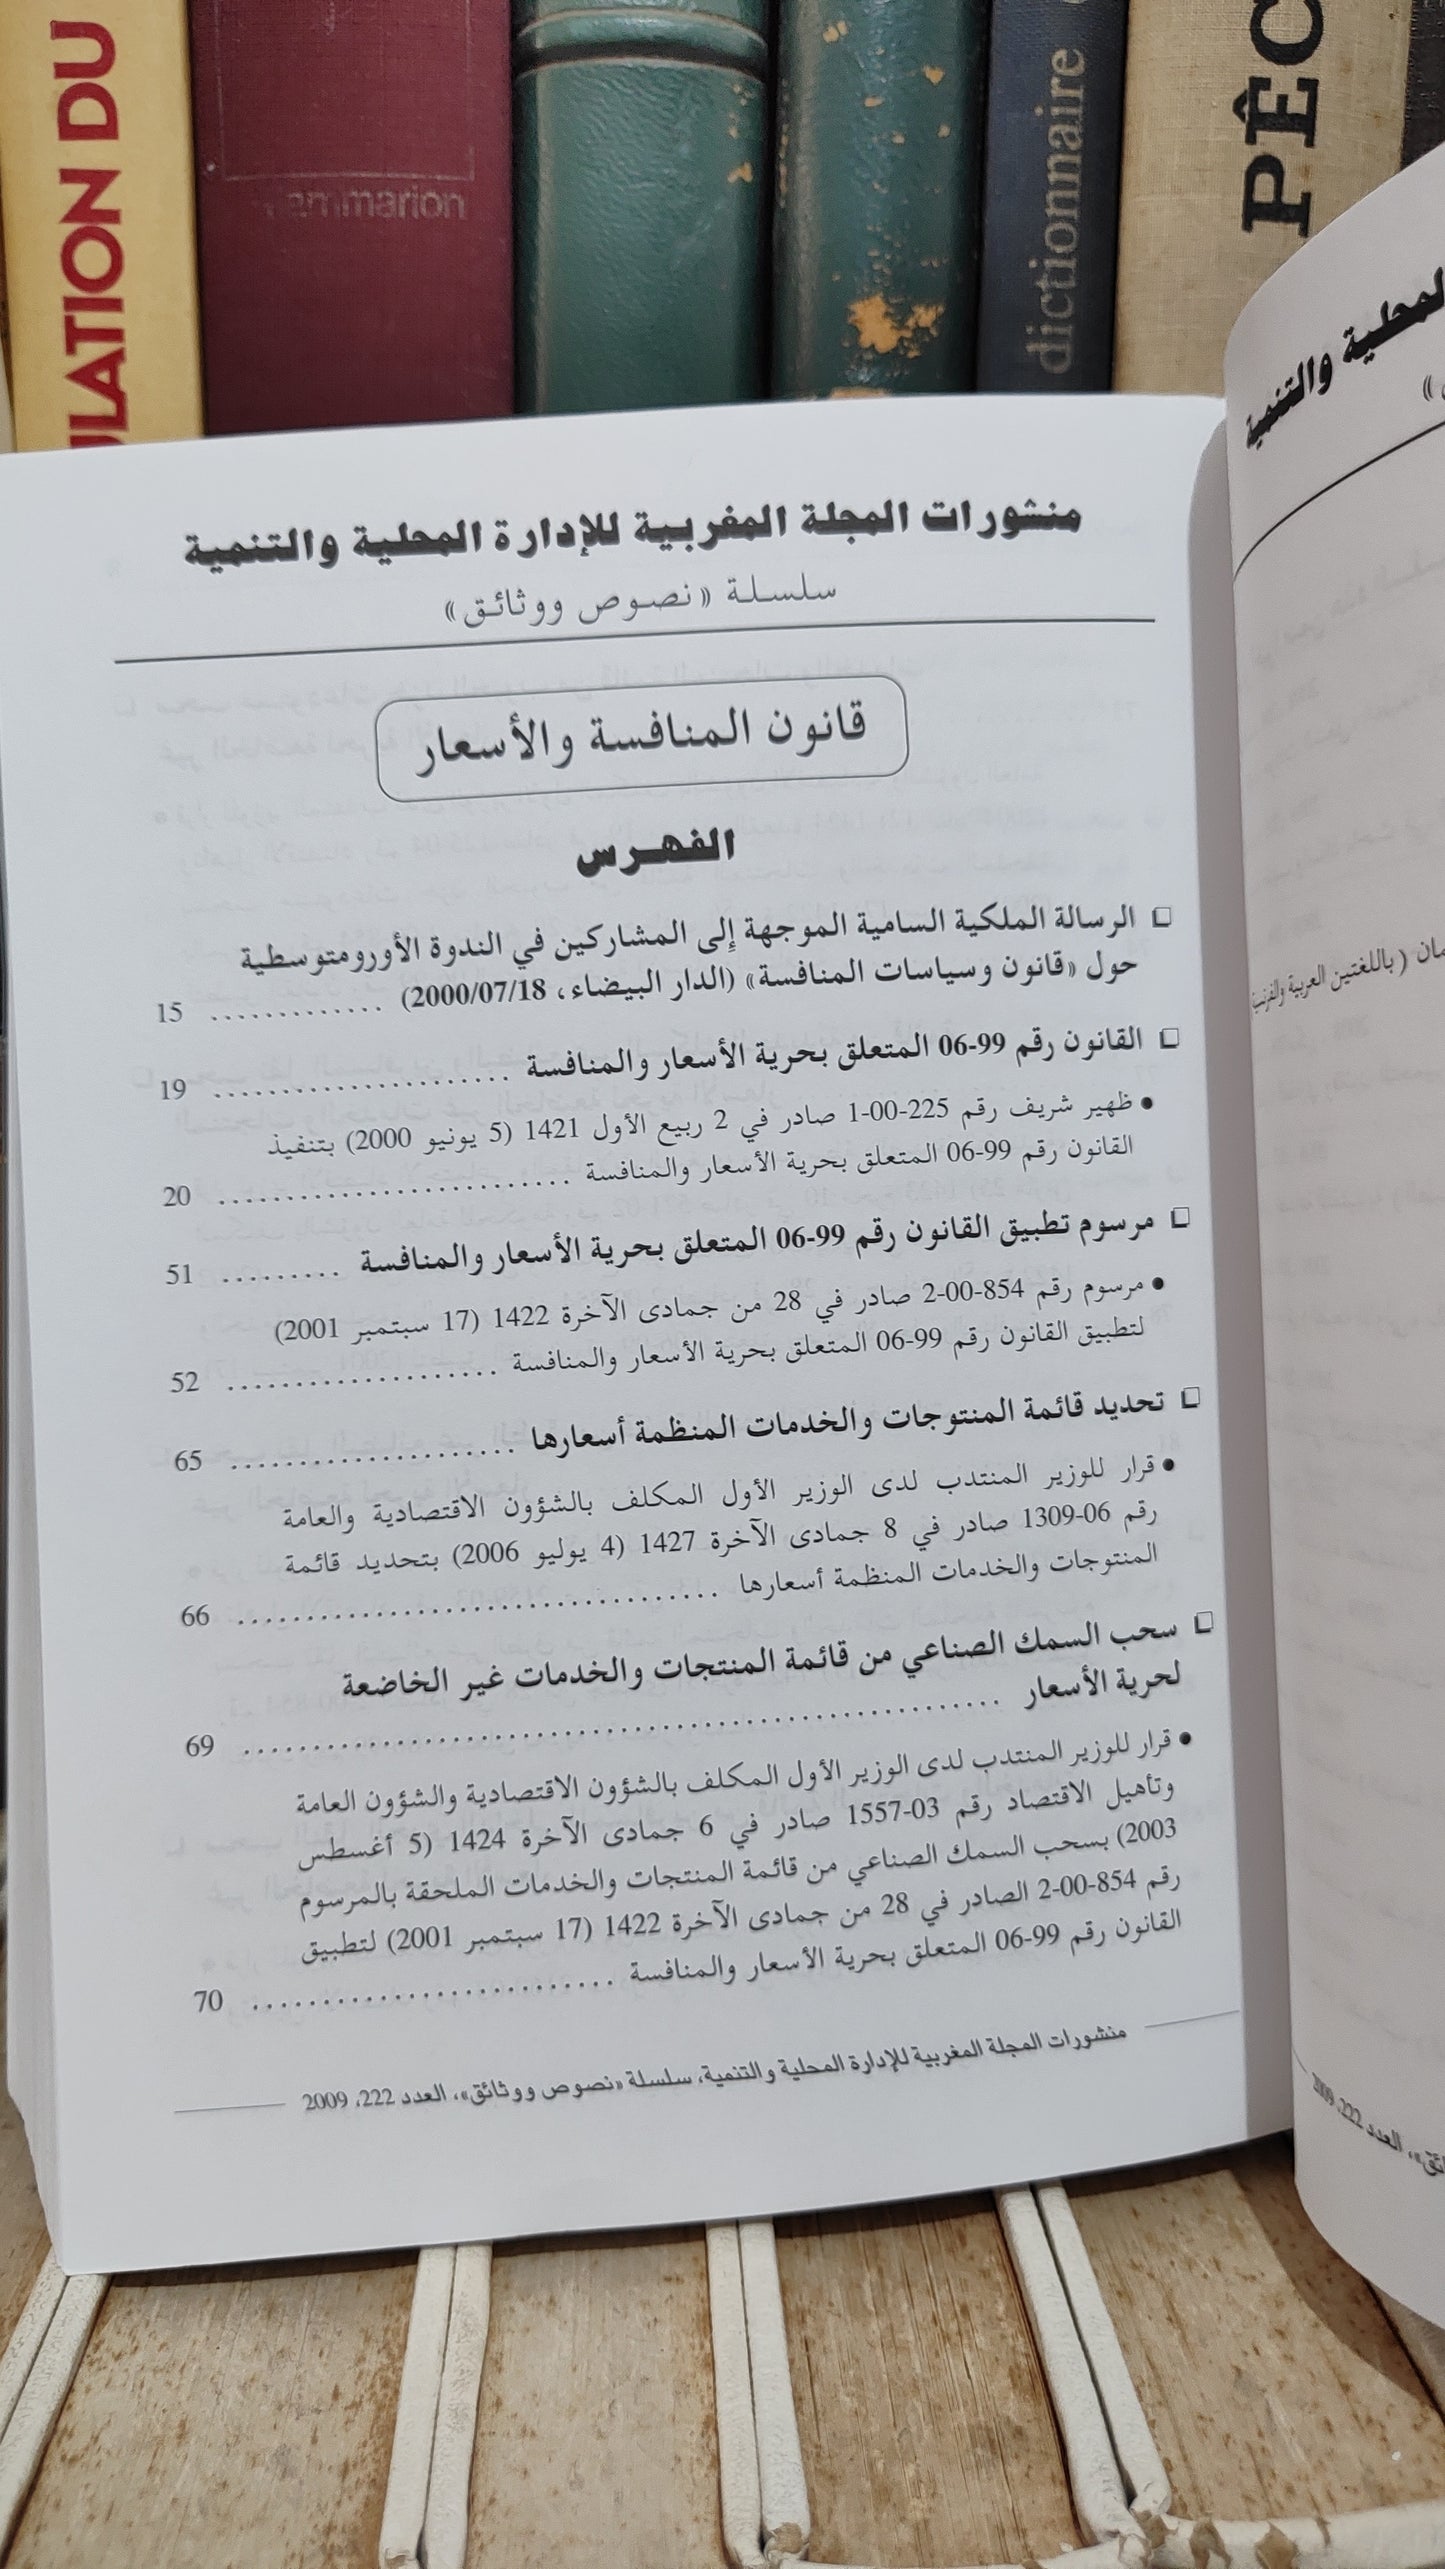 ULATION DU
flammarion
dictionnaire
PÊC
منشورات المجلة المغربية للإدارة المحلية والتنمية
سلسلة «نصوص ووثائق»
قانون المنافسة والأسعار
الفهرس
❑ الرسالة الملكية السامية الموجهة إلى المشاركين في الندوة الأورومتوسطية
حول «قانون وسياسات المنافسة» (الدار البيضاء، 2000/07/18) ............. 15
❑ القانون رقم 99-06 المتعلق بحرية الأسعار والمنافسة ...................... 19
• ظهير شريف رقم 225-00-1 صادر في 2 ربيع الأول 1421 (5 يونيو 2000) بتنفيذ
القانون رقم 99-06 المتعلق بحرية الأسعار والمنافسة .......................... 20
❑ مرسوم تطبيق القانون رقم 99-06 المتعلق بحرية الأسعار والمنافسة ......... 51
• مرسوم رقم 854-00-2 صادر في 28 من جمادى الآخرة 1422 (17 سبتمبر 2001)
لتطبيق القانون رقم 99-06 المتعلق بحرية الأسعار والمنافسة .................... 52
❑ تحديد قائمة المنتوجات والخدمات المنظمة أسعارها ..................... 65
• قرار للوزير المنتدب لدى الوزير الأول المكلف بالشؤون الاقتصادية والعامة
رقم 06-1309 صادر في 8 جمادى الآخرة 1427 (4 يوليو 2006) بتحديد قائمة
المنتوجات والخدمات المنظمة أسعارها ................................... 66
❑ سحب السمك الصناعي من قائمة المنتجات والخدمات غير الخاضعة
لحرية الأسعار ....................................................... 69
• قرار للوزير المنتدب لدى الوزير الأول المكلف بالشؤون الاقتصادية والشؤون العامة
وتأهيل الاقتصاد رقم 03-1557 صادر في 6 جمادى الآخرة 1424 (5 أغسطس
2003) بسحب السمك الصناعي من قائمة المنتجات والخدمات الملحقة بالمرسوم
رقم 854-00-2 الصادر في 28 من جمادى الآخرة 1422 (17 سبتمبر 2001) لتطبيق
القانون رقم 99-06 المتعلق بحرية الأسعار والمنافسة .......................... 70
منشورات المجلة المغربية للإدارة المحلية والتنمية، سلسلة «نصوص ووثائق»، العدد 222، 2009
المحلية والتنمية
(باللغتين العربية والفرنسية
العدد 222، 2009